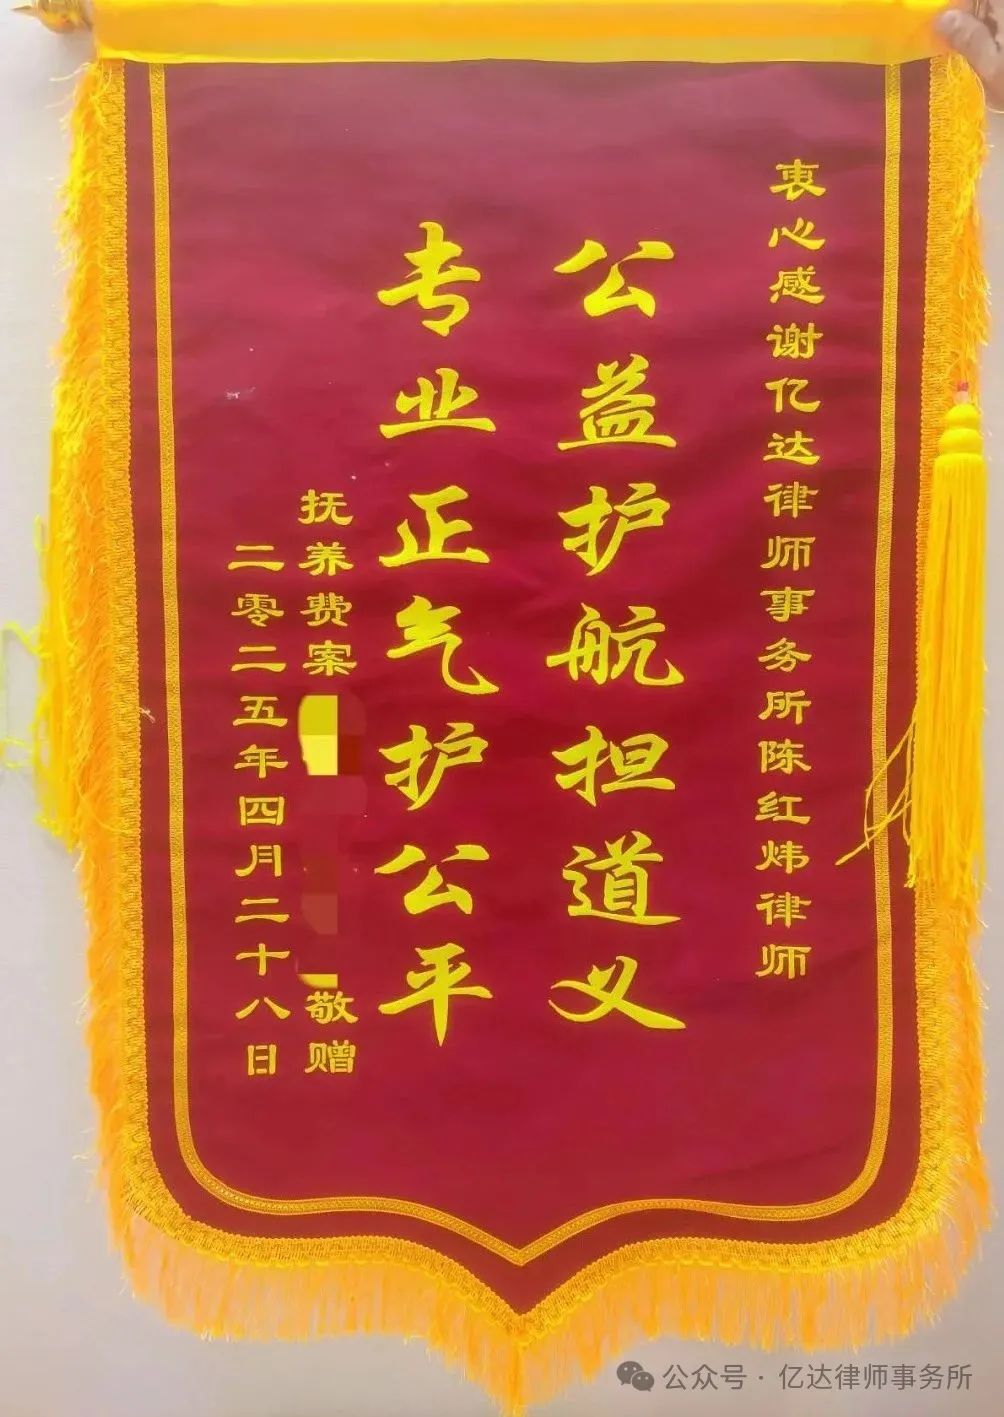 衷心感谢亿达律师事务所陈红炜律师
公益护航担道义
专业正气护公平
抚养费案
敬赠
二零二五年四月二十八日
公众号·亿达律师事务所